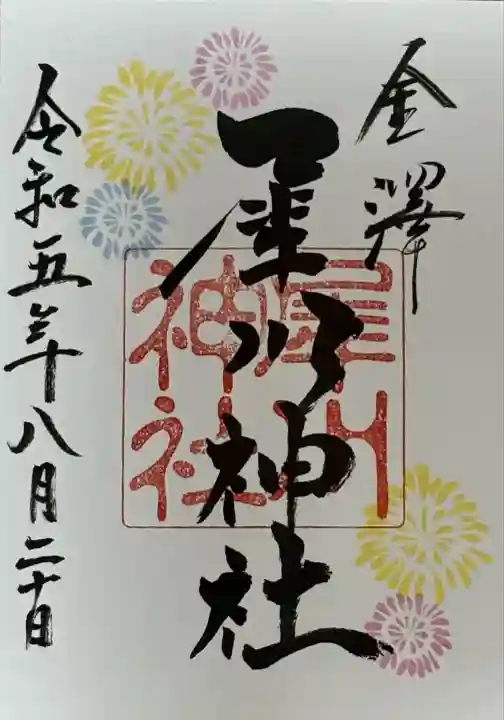 金澤
犀川神社
犀川
神社
令和五年八月二十日